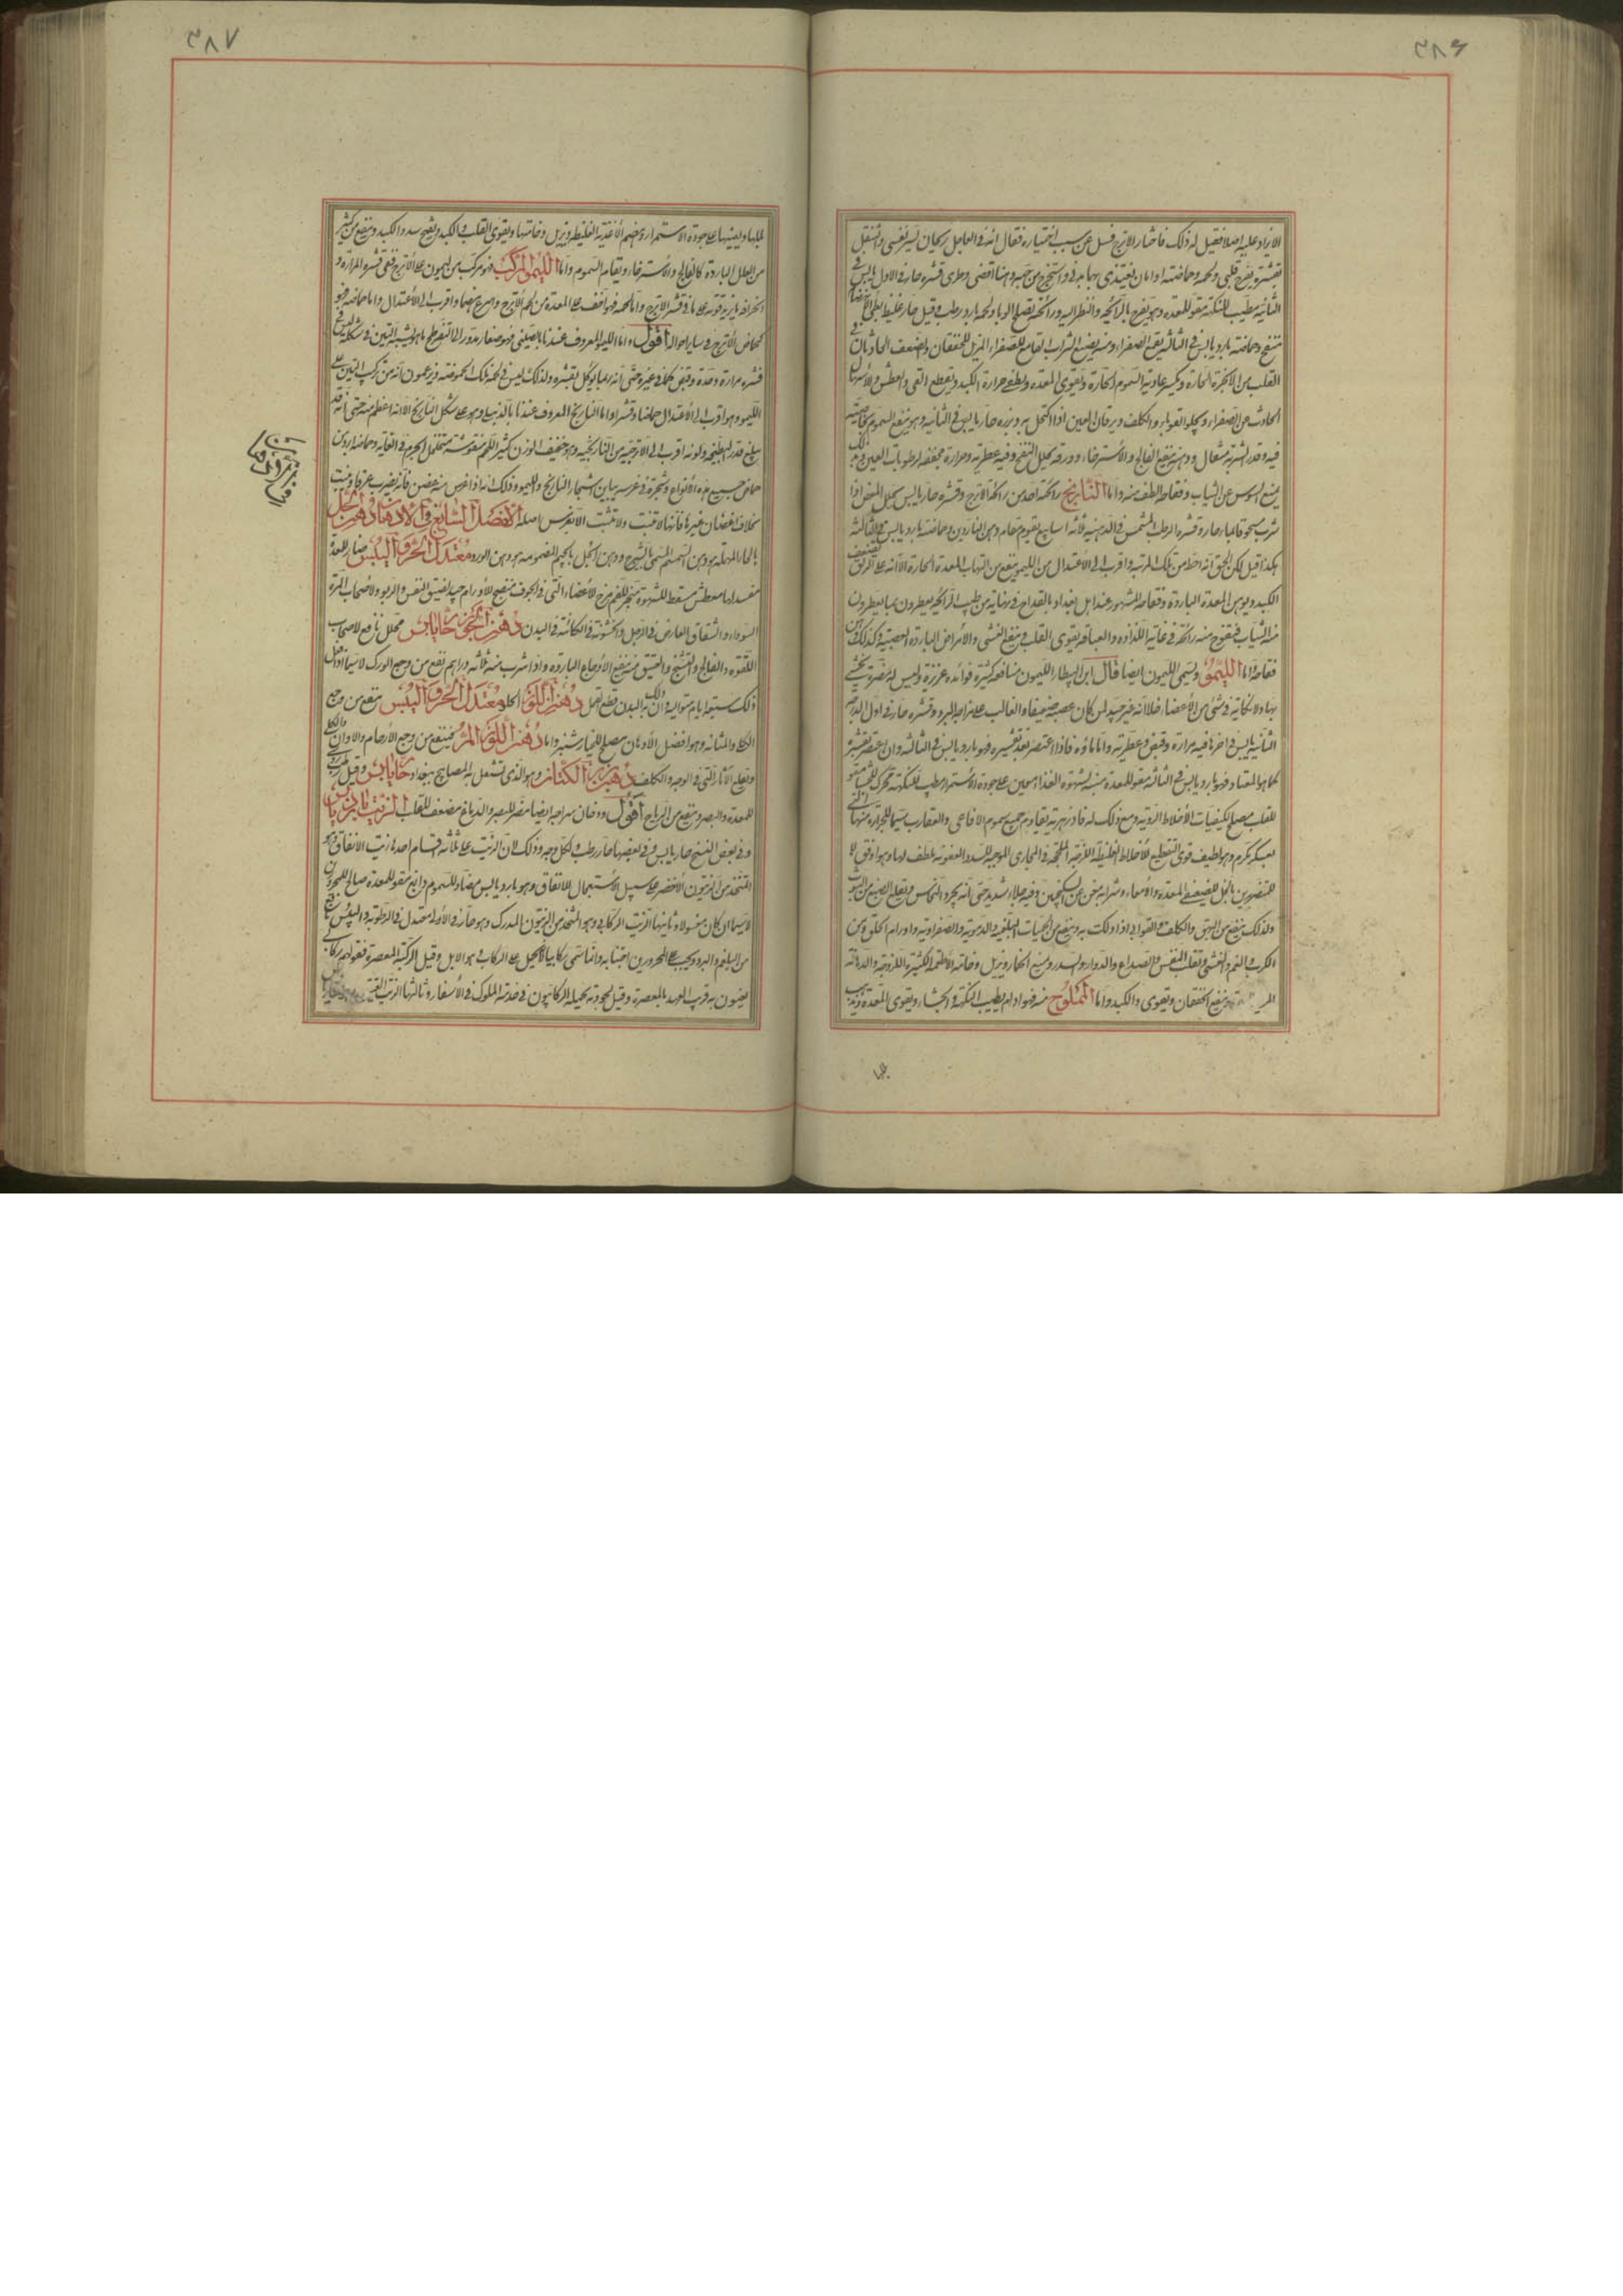 ٣٨٦
الايراد عليه اصلا فقيل له ذلك فاختار الاترج فسئل عن سبب اختياره فقال انه في العاجل ريحان لنفسي واتنقل
بقشره ويفرح قلبي ولحمه وحماضته اداما ان نغتذي بهما بدني واستخرج من حبه دهنا اقضي وطري قشره حار في الاول يابس في
الثانية مطيب للنكهة مقو للمعدة وهو يفرح بالرائحة والنظر اليه ورائحته تصلح الوباء ولحمه بارد رطب وقيل حار غليظ بطيء الهضم
منفخ وحماضته بارد يابس في الثالثة يقمع الصفراء ومنه يصنع الشراب القامع للصفراء المزيل للخفقان ولضعف الحادثان في
القلب من الابخرة الحارة ويكسر عادية السموم الحارة ويقوي المعدة ويطفئ حرارة الكبد ويقطع القي والعطش والاسهال
الحادث عن الصفراء ويجلو القوابي والكلف ويرقان العين اذا اكتحل به وبزره حار يابس في الثانية وهو ينفع السموم بخاصية
فيه وقدر الشربة مثقال ودهنه ينفع الفالج والاسترخاء وورقه يحلل النفخ وفيه عطرية ومرارة مجففة لرطوبات العين
يمنع السوس عن الثياب وفقاحه الطف منه واما النارنج رائحته احد من رائحة الاترج وقشره حار يابس يحلل المغص اذا
شرب مسحوقا بماء حار وقشره الرطب المشمس في الدهن ثلاثة اسابيع يقوم مقام دهن الناردين وحماضته بارد يابس في الثالثة
هكذا قيل لكن الحق انه احط من تلك المرتبة واقرب الى الاعتدال من الليمو ينفع من التهاب المعدة الحارة الا انه على الريق يضعف
الكبد ويوهن المعدة الباردة وفقاحه المشهور عند اهل بغداد بالقداح في نهاية من طيب الرائحة يعطرون بما يقطرون
منه الثياب فيفوح منه رائحة في غاية اللذاذة والعباقة يقوي القلب وينفع الغشي والامراض الباردة العصبية وكذلك دهن
فقاحه واما الليمو ويسمى الليمون ايضا قال ابن البيطار الليمون منافعه كثيرة فوائده عزيزة وليس له مضرة يخشى
بها ولا نكاية في شيء من الاعضاء خلا انه غير جيد لمن كان عصبه ضعيفا والغالب على مزاجه البرد وقشره حار في اول الدرجة
الثانية يابس في اخرها فيه مرارة وقبض وعطرية واما ماؤه فاذا اعتصر بعد تقشيره فهو بارد يابس في الثالثة وان اعتصر بقشره
كما هو المعتاد فهو بارد يابس في الثالثة مقو للمعدة منبه لشهوة الغذاء معين على جودة الاستمراء مطيب للنكهة محرك للشهوة مقو
للقلب مصلح لكيفيات الاخلاط الردية ومع ذلك له فادزهرية تقاوم جميع سموم الافاعي والعقارب سيما الجرارة منها التي
بعسكر مكرم وهو لطيف قوي التقطيع للاخلاط الغليظة اللزجة الملتحجة في المجاري الموجبة للسدد والعفونة ملطف لها وهو اوفق لا
للمتضررين بالخل لضعيفي المعدة والامعاء وشرابه مغن عن السكنجبين وفيه جلاء شديد حتى انه يجرد النحاس ويقلع الصبغ من الثوب
ولذلك ينفع من البهق والكلف والقوابي اذا دلكت به وينفع من الحميات البلغمية والدموية والصفراوية واورام الحلق ومن
الكرب والغم والغشي وتقلب النفس والصداع والدوار والسدر ويمنع الخمار ويزيل وخامة الاطعمة الكثيرة اللزوجة والدهانة
وينفع الخفقان ويقوي والكبد واما المملوح منه فهو ادام يطيب النكهة والجشاء ويقوي المعدة ويذيب
٣٨٧
بلها ويعينها على جودة الاستمراء وهضم الاغذية الغليظة ويزيل وخامتها ويقوي القلب والكبد ويفتح سدد الكبد وينفع من كثير
من العلل الباردة كالفالج والاسترخاء ويقاوم السموم واما الليمو المركب فهو مركب من ليمون على الاترج ففي قشره المرارة و
الحرافة ما يزيد قوته على ما في قشر الاترج واما لحمه فهو اخف على المعدة من لحم الاترج واسرع هضما واقرب الى الاعتدال واما حماضه فهو
كحماض الاترج في ساير احواله اقول واما الليمو المعروف عندنا بالصيني فهو صغار مدور لطا تفرطح ما هو يشبه التين في شكله ليس في
قشره مرارة وحدة وقبض كما في غيره حتى انه ربما يؤكل بقشره ولذلك ليس في لحمه تلك الحموضة ويزعمون انه من تركيب التين على
الليمو وهو اقرب الى الاعتدال حماضا وقشرا واما النارنج المعروف عندنا بالذنبا وهو على شكل النارنج الا انه اعظم منه حتى انه قد
يبلغ قدر البطيخة ولونه اقرب الى الاترجية من النارنجية وهو خفيف الوزن كثير اللحم منفوشه متخلخل الجرم في الغاية وحماضه ابرد من
حماض جميع هذه الانواع وشجرته في غرسه يباين اشجار النارنج والليمو وذلك انه اذا غرس منه غصن فانه يضرب عرقا وينبت
بخلاف اغصان غيرها فانها لا تنبت ولا تثبت الا بغرس اصله الفصل السابع في الادهان دهن الحل
بالحاء المهملة هو دهن السمسم المسمى بالشيرج ودهن الجل بالجيم المضمومة هو دهن الورد معتدل الحر والبس ضار للمعدة
مفسد لها معطش مسقط للشهوة مبخر للفم مرخ للاعضاء التي في الجوف منضج للاورام جيد لضيق النفس والربو ولاصحاب المرة
السوداء والشقاق العارض في الرجل والخشونة الكائنة في البدن دهن الجوز حار يابس محلل نافع لاصحاب
اللقوة والفالج والتشنج والعتيق منه ينفع الاوجاع الباردة واذا شرب منه ثلاثة دراهم نفع من وجع الورك لا سيما اذا فعل
ذلك سبعة ايام متوالية وان دلك به البدن قطع القمل دهن اللوز الحلو معتدل الحر واليبس ينفع من وجع
الكلى والمثانة وهو افضل الادهان مصلح للخيار شنبر واما دهن اللوز المر فينفع من وجع الارحام والاذان والكلى
ويقلع الآثار التي في الوجه والكلف دهن بزر الكتان وهو الذي تشعل به المصابيح ببغداد حار يابس وقيل رطب ردي
للمعدة والبصر وينفع من الرياح اقول ودخان سراجه ايضا مضر للبصر والدماغ مضعف للقلب الزيت بارد يابس
وفي بعض النسخ حار يابس وفي بعضها حار رطب ولكل وجه وذلك لان الزيت على ثلاثة اقسام احدها زيت الانفاق وهو
المتخذ من الزيتون الاخضر على سبيل الاستعمال للانفاق وهو بارد يابس مضاد للسموم دابغ مقو للمعدة صالح للمحرورين
لا سيما ان كان مغسولا وثانيها الزيت الركابي وهو المتخذ من الزيتون المدرك وهو حار في الاولى معتدل في الرطوبة واليبس نافع
من البلغم والبرد ويجب على المحرورين اجتنابه وانما سمي ركابيا لانه يحمل على الركاب هو الابل وقيل الركبة المعصرة فقولهم ركابي
يعنون به قريب العهد بالمعصرة وقيل لجودته يحمله الركابيون في خدمة الملوك في الاسفار وثالثها الزيت العتيق